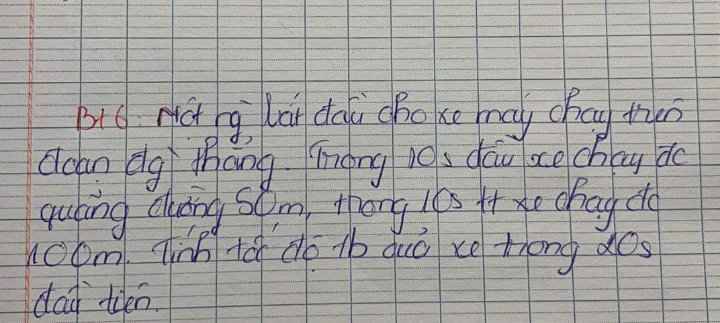 Bt 6: Một ng` bắt đầu cho xe máy chạy trên
đoạn đg` thẳng. Trong 10s đầu xe chạy đc
quãng đường 50m, trong 10s tt xe chạy đc
100m. Tính tốc độ tb của xe trong 20s
đầu tiên.